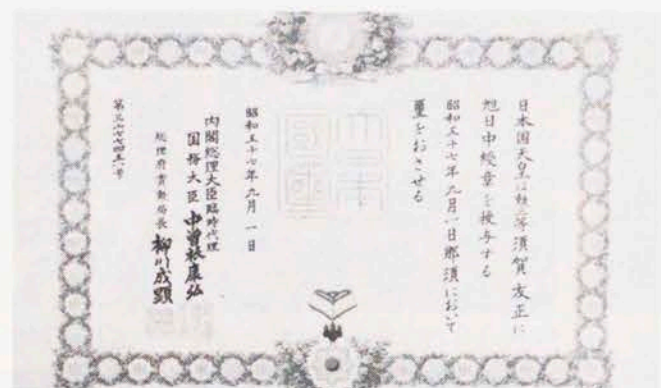 日本国天皇は勲三等須賀友正に
旭日中綬章を授与する
昭和五十七年九月一日那須において
璽をおさせる
大日本
国璽
昭和五十七年九月一日
内閣総理大臣臨時代理
国務大臣 中曽根康弘
総理府賞勲局長 柳川成顕